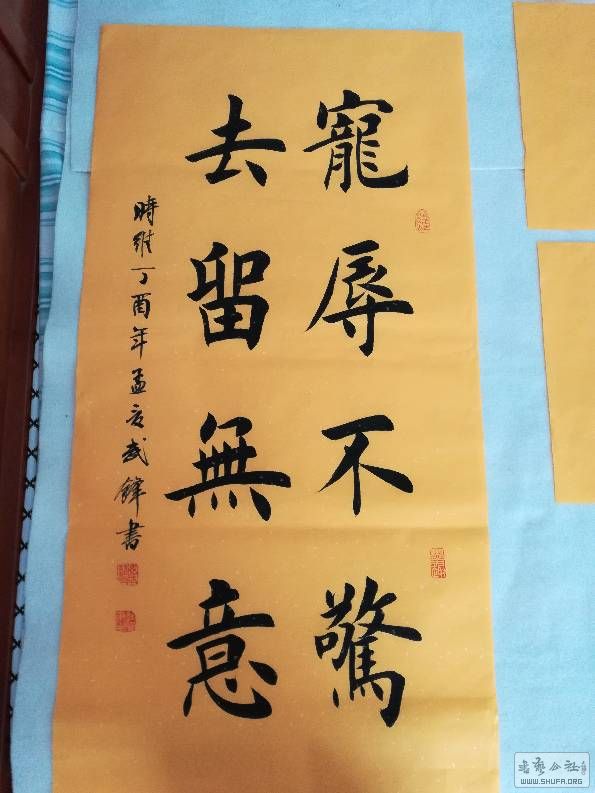 寵辱不驚
去留無意
時維丁酉年孟夏武鋒書
WWW.SHUFA.ORG